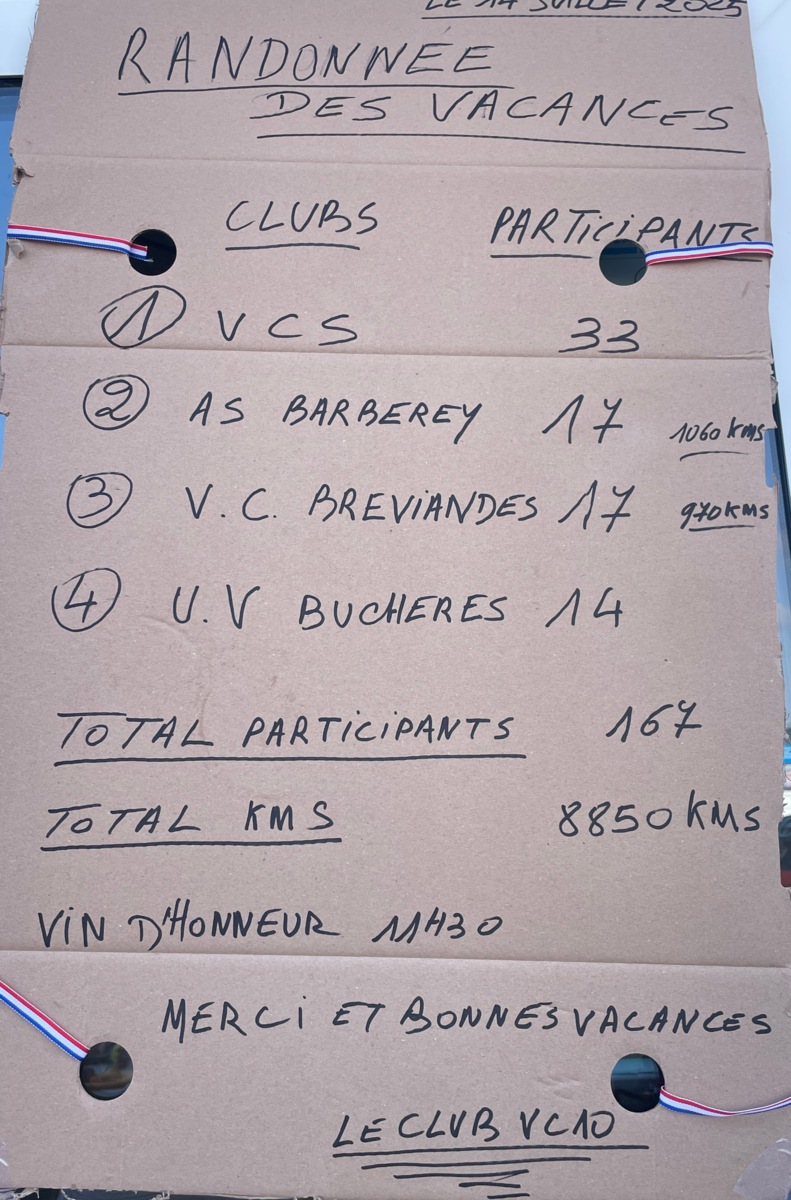 LE 14 JUILLET 2025
RANDONNEE
DES VACANCES
CLUBS PARTICIPANTS
1 VCS 33
2 AS BARBEREY 17 1060 KMS
3 V.C. BREVIANDES 17 970 KMS
4 U.V BUCHERES 14
TOTAL PARTICIPANTS 167
TOTAL KMS 8850 KMS
VIN D'HONNEUR 11H30
MERCI ET BONNES VACANCES
LE CLUB VC10